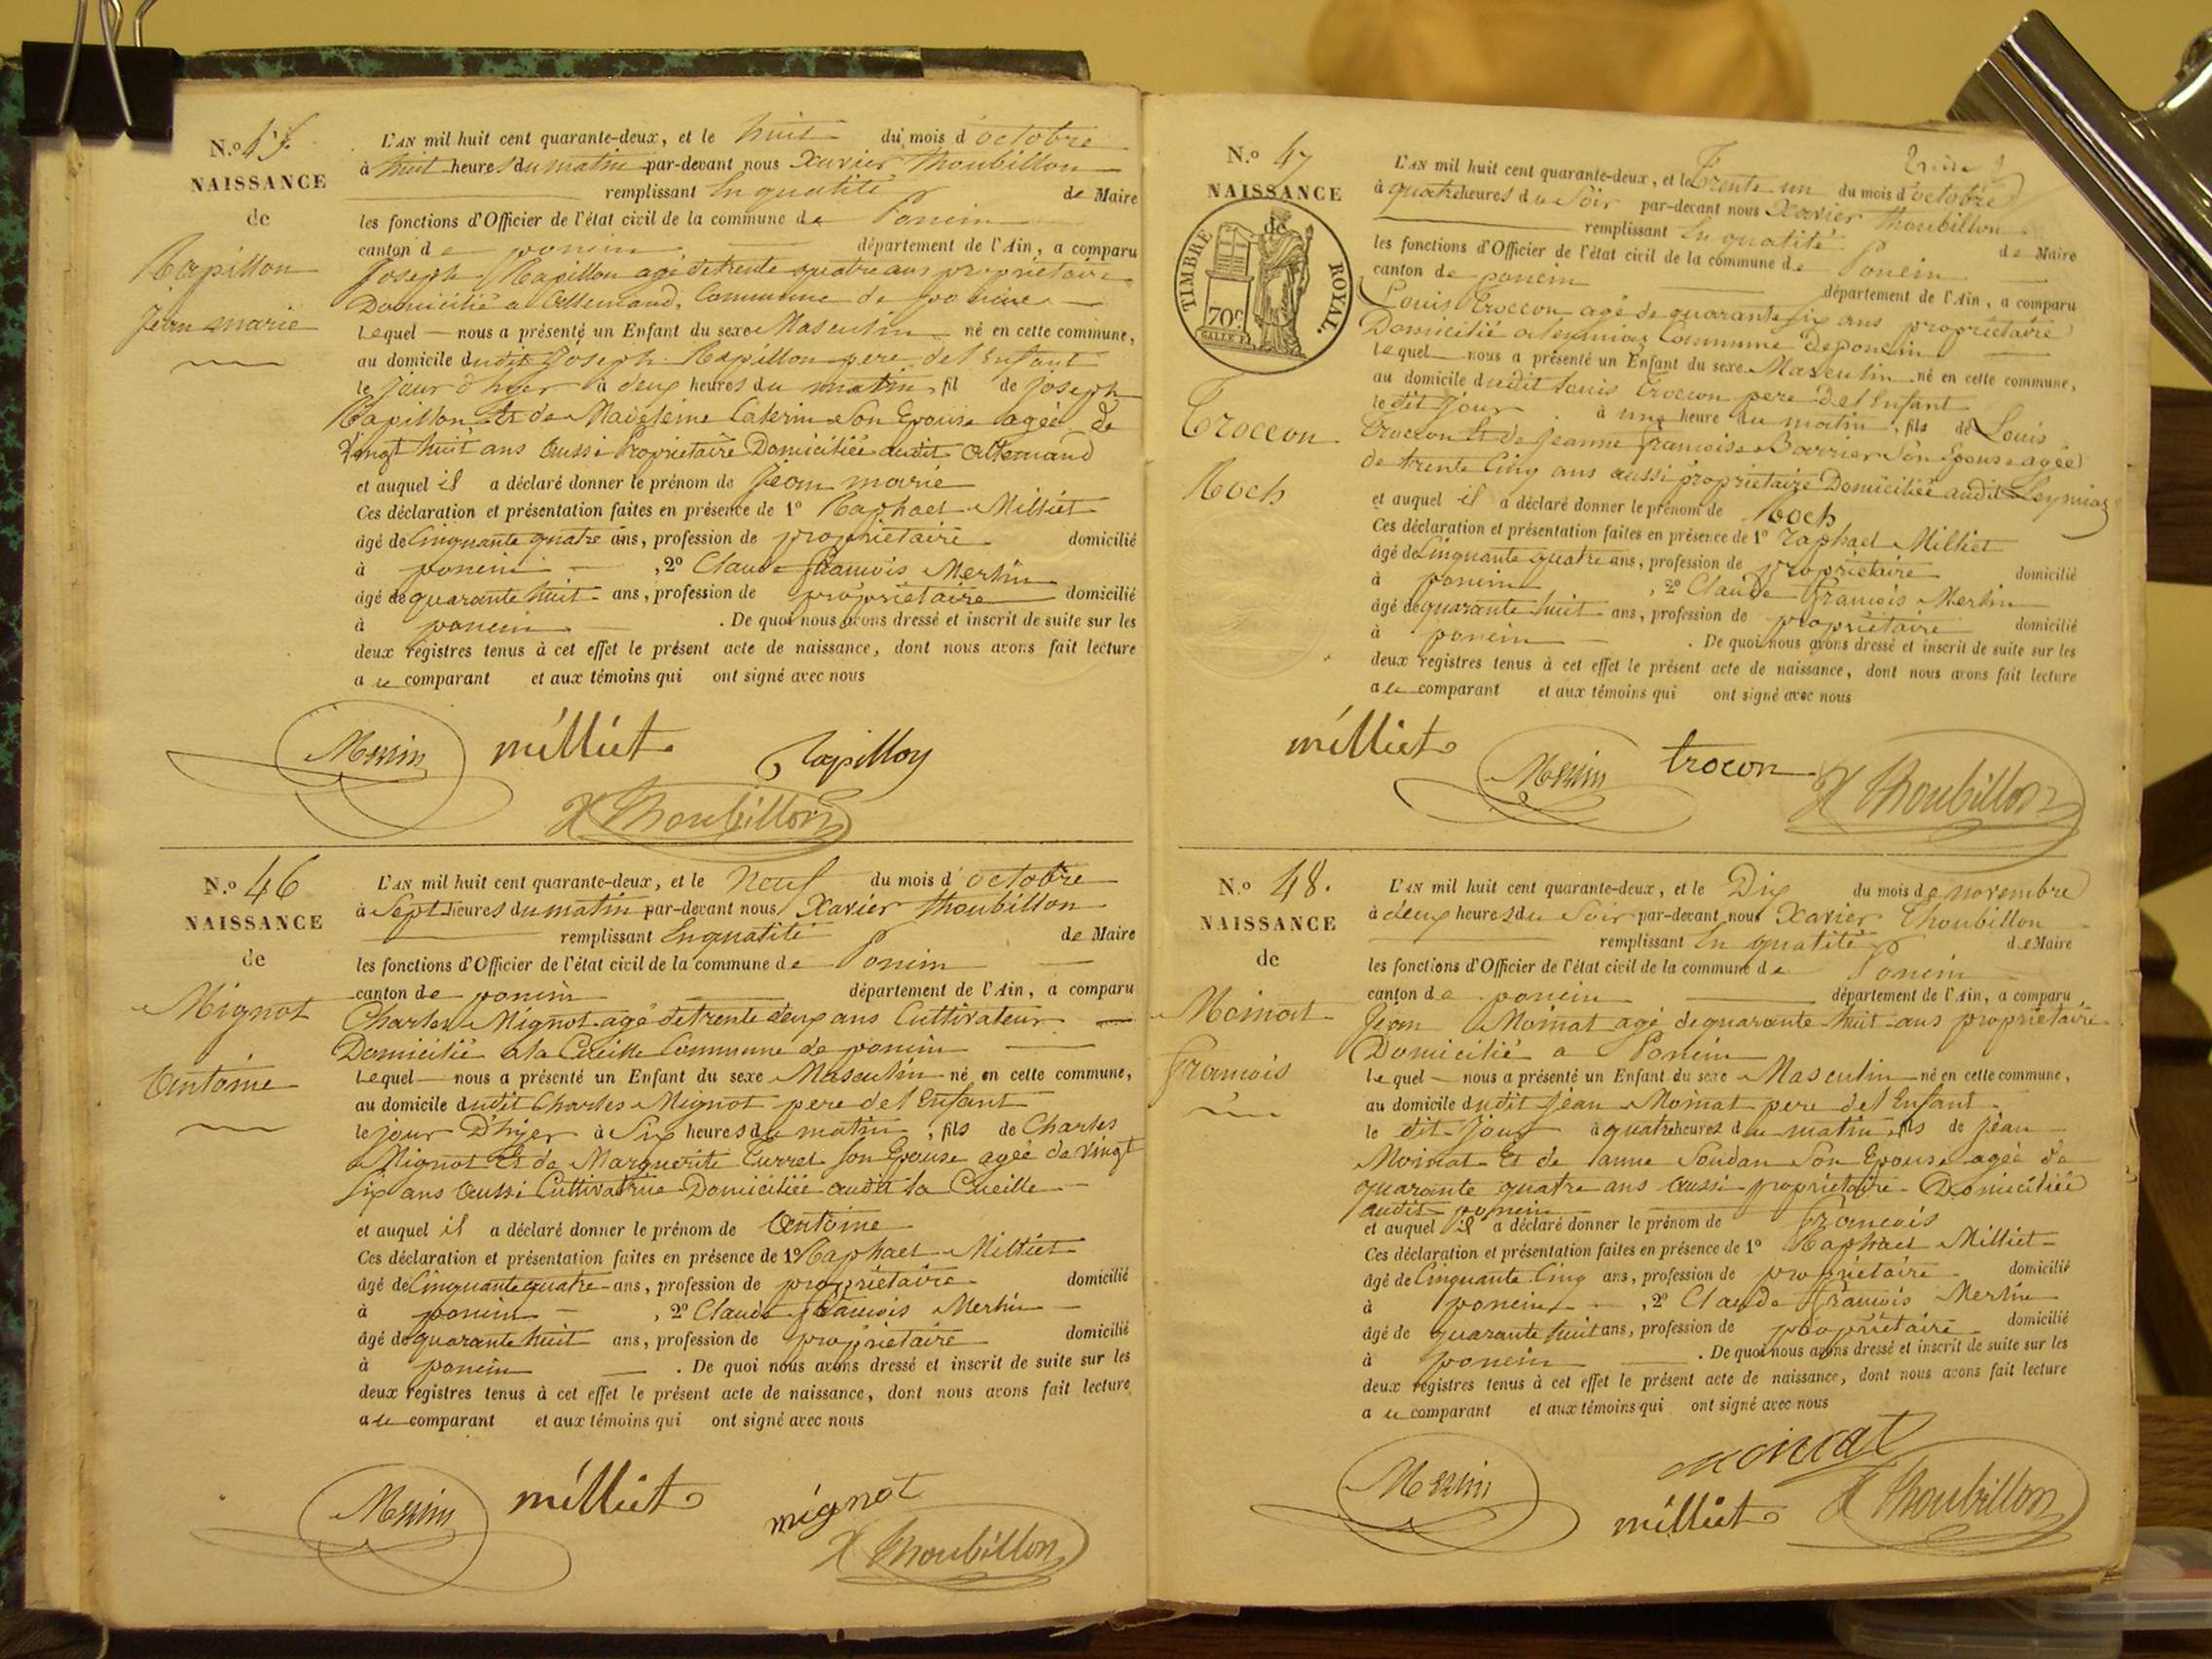 N.º 45.
NAISSANCE
de
Rapillon
Jean marie
L'AN mil huit cent quarante-deux, et le huit du mois d'octobre
à huit heures du matin par-devant nous Xavier Thoubillon
remplissant En qualité de Maire
les fonctions d'Officier de l'état civil de la commune de Poncin
canton de poncin département de l'Ain, a comparu
Joseph Rapillon agé de trente quatre ans propriétaire
Domicilié a Allemand, Commune de poncin
Lequel nous a présenté un Enfant du sexe Masculin né en cette commune,
au domicile dudit Joseph Rapillon pere del Enfant
le jour d'hyer à deux heures du matin, fil de joseph
Rapillon Et de Madeleine Caterin Son Epouse agée de
vingt huit ans Aussi Propriétaire Domiciliée audit Allemand
et auquel il a déclaré donner le prénom de Jean marie
Ces déclaration et présentation faites en présence de 1º Raphael Milliet
âgé de Cinquante quatre ans, profession de propriétaire domicilié
à poncin , 2º Claude François Merlin
âgé de quarante huit ans, profession de propriétaire domicilié
à poncin . De quoi nous avons dressé et inscrit de suite sur les
deux registres tenus à cet effet le présent acte de naissance, dont nous avons fait lecture
a u comparant et aux témoins qui ont signé avec nous
Merlin milliet Rapillon
X Thoubillon
N.º 46
NAISSANCE
de
Mignot
Antoine
L'AN mil huit cent quarante-deux, et le Neuf du mois d'octobre
à Sept heures du matin par-devant nous Xavier Thoubillon
remplissant En qualité de Maire
les fonctions d'Officier de l'état civil de la commune de Poncin
canton de poncin département de l'Ain, a comparu
Charles Mignot agé de trente deux ans Cultivateur
Domicilié a la Cueille Commune de poncin
Lequel nous a présenté un Enfant du sexe Masculin né en cette commune,
au domicile dudit Charles Mignot pere del Enfant
le jour D'hyer à Six heures du matin, fils de Charles
Mignot Et de Marguerite Turrel son Epouse agée de vingt
six ans Aussi Cultivatrice Domiciliée audit la Cueille
et auquel il a déclaré donner le prénom de Antoine
Ces déclaration et présentation faites en présence de 1º Raphael Milliet
âgé de Cinquante quatre ans, profession de propriétaire domicilié
à poncin , 2º Claude François Merlin
âgé de quarante huit ans, profession de propriétaire domicilié
à poncin . De quoi nous avons dressé et inscrit de suite sur les
deux registres tenus à cet effet le présent acte de naissance, dont nous avons fait lecture
a u comparant et aux témoins qui ont signé avec nous
Merlin milliet mignot
X Thoubillon
N.º 47
NAISSANCE
de
TIMBRE ROYAL.
70c
Troccon
Roch
L'AN mil huit cent quarante-deux, et le Trente un du mois d'octobre
à quatre heures du Soir par-devant nous Xavier Thoubillon
remplissant En qualité de Maire
les fonctions d'Officier de l'état civil de la commune de Poncin
canton de poncin département de l'Ain, a comparu
Louis Troccon agé de quarante six ans propriétaire
Domicilié a leymiaz Commune de poncin
Lequel nous a présenté un Enfant du sexe Masculin né en cette commune,
au domicile dudit Louis Troccon pere Del Enfant
le dit jour à une heure du matin, fils de Louis
Troccon Et de Jeanne françoise Barrier Son Epouse agée
de trente Cinq ans aussi propriétaire Domiciliée audit Leymiaz
et auquel il a déclaré donner le prénom de Roch
Ces déclaration et présentation faites en présence de 1º Raphael Milliet
âgé de Cinquante quatre ans, profession de propriétaire domicilié
à poncin , 2º Claude François Merlin
âgé de quarante huit ans, profession de propriétaire domicilié
à poncin . De quoi nous avons dressé et inscrit de suite sur les
deux registres tenus à cet effet le présent acte de naissance, dont nous avons fait lecture
a u comparant et aux témoins qui ont signé avec nous
milliet Merlin trocon X Thoubillon
N.º 48.
NAISSANCE
de
Moinat
François
L'AN mil huit cent quarante-deux, et le Dix du mois de novembre
à deux heures du Soir par-devant nous Xavier Thoubillon
remplissant En qualité de Maire
les fonctions d'Officier de l'état civil de la commune de Poncin
canton de poncin département de l'Ain, a comparu
Jean Moinat agé de quarante huit ans propriétaire
Domicilié a Poncin
Lequel nous a présenté un Enfant du sexe Masculin né en cette commune,
au domicile dudit Jean Moinat pere del Enfant
le dit Jour à quatre heures du matin, fils de Jean
Moinat Et de Janne Soudan Son Epouse agée de
quarante quatre ans Aussi propriétaire Domiciliée
audit poncin
et auquel il a déclaré donner le prénom de François
Ces déclaration et présentation faites en présence de 1º Raphael Milliet
âgé de Cinquante Cinq ans, profession de propriétaire domicilié
à poncin , 2º Claude François Merlin
âgé de quarante huit ans, profession de propriétaire domicilié
à poncin . De quoi nous avons dressé et inscrit de suite sur les
deux registres tenus à cet effet le présent acte de naissance, dont nous avons fait lecture
a u comparant et aux témoins qui ont signé avec nous
Merlin moinat
milliet X Thoubillon